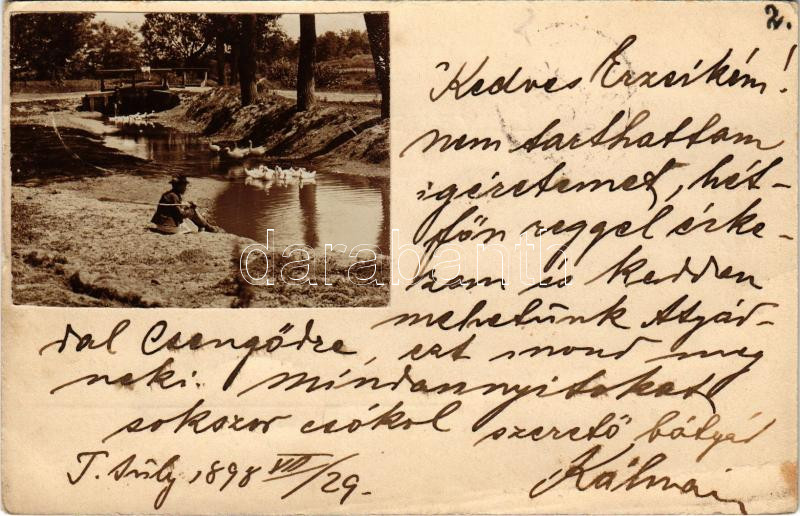 2.
Kedves Erzsikém!
nem tarthattam
igéretemet, hét-
főn reggel érke-
zem és kedden
mehetünk Atyád-
dal Csengődre, ezt mond meg
neki. Mindannyitokat
sokszor csókol szerető bátyád
Kálmán
T. Süly, 1898 VII/29.
darabanth